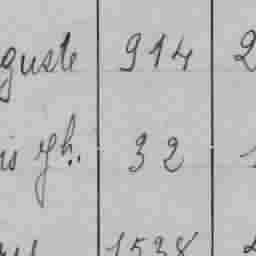 guste 914 2
is ph. 32
1538